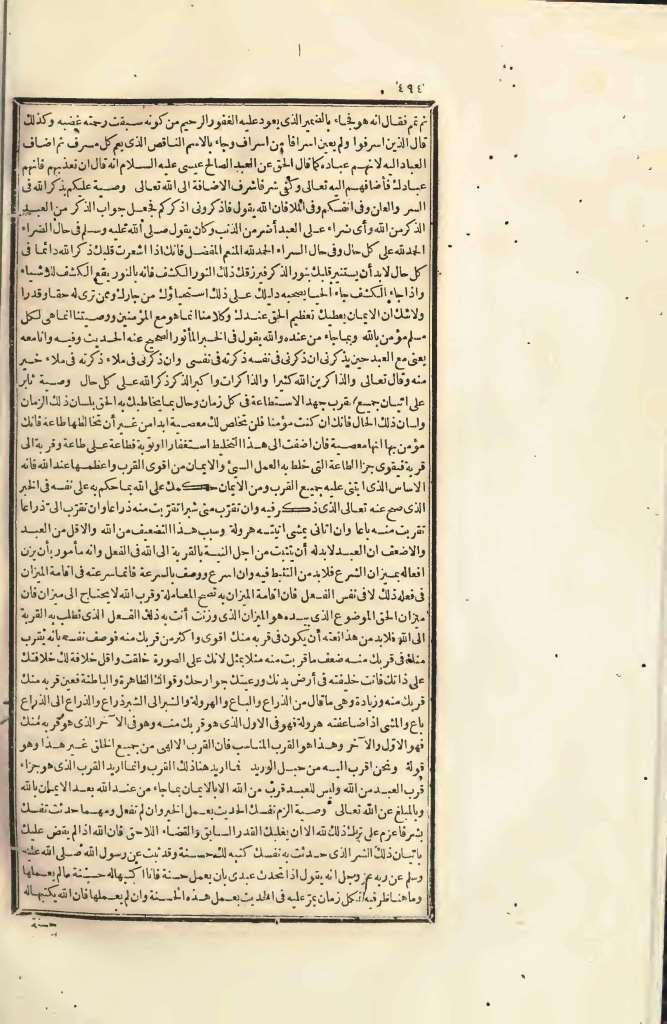 ٤٩٤
ثم تمم فقال انه هو فجاء بالضمير الذى يعود عليه الغفور الرحيم من كونه سبقت رحمته غضبه وكذلك
قال الذين اسرفوا ولم يعين اسرافا من اسراف وجاء بالاسم الناقص الذى يعم كل مسرف ثم اضاف
العباد اليه لانهم عباده كما قال الحق عن العبد الصالح عيسى عليه السلام انه قال ان تعذبهم فانهم
عبادك فأضافهم اليه تعالى وكفى شرفا شرف الاضافة الى الله تعالى وصية عليكم بذكر الله فى
السر والعلن وفى انفسكم وفى الملا فان الله يقول فاذكرونى اذكركم فجعل جواب الذكر من العبد
الذكر من الله وأى ضراء على العبد أضر من الذنب وكان يقول صلى الله عليه وسلم فى حال الضراء
الحمد لله على كل حال وفى حال السراء الحمد لله المنعم المفضل فانك اذا اشعرت قلبك ذكر الله دائما فى
كل حال لا بد أن يستنير قلبك بنور الذكر فيرزقك ذلك النور الكشف فانه بالنور يقع الكشف للاشياء
واذا جاء الكشف جاء الحيا يصحبه دليلك على ذلك استحياؤك من جارك وممن ترى له حقا وقدرا
ولا شك ان الايمان يعطيك تعظيم الحق عندك وكلامنا انما هو مع المؤمنين ووصيتنا انما هى لكل
مسلم مؤمن بالله وبما جاء من عنده والله يقول فى الخبر المأثور الصحيح عنه الحديث وفيه وانا معه
يعنى مع العبد حين يذكرنى ان ذكرنى فى نفسه ذكرته فى نفسى وان ذكرنى فى ملاء ذكرته فى ملاء خير
منه وقال تعالى والذاكرين الله كثيرا والذاكرات واكبر الذكر ذكر الله على كل حال وصية ثابر
على اتيان جميع القرب جهد الاستطاعة فى كل زمان وحال بما يخاطبك به الحق بلسان ذلك الزمان
ولسان ذلك الحال فانك ان كنت مؤمنا فلن تخلص لك معصية ابدا من غير أن تخالطها طاعة فانك
مؤمن بها انها معصية فان اضفت الى هذا التخليط استغفارا او توبة فطاعة على طاعة وقربة الى
قربة فيقوى جزاء الطاعة التى خلط به العمل السيئ والايمان من اقوى القرب واعظمها عند الله فانه
الاساس الذى ابتنى عليه جميع القرب ومن الايمان حكمك على الله بما حكم به على نفسه فى الخبر
الذى صح عنه تعالى الذى ذكر فيه وان تقرب منى شبرا تقربت منه ذراعا وان تقرب الى ذراعا
تقربت منه باعا وان اتانى يمشى اتيته هرولة وسبب هذا التضعيف من الله والاقل من العبد
والاضعف ان العبد لا بد له أن يتثبت من اجل النية بالقربة الى الله فى الفعل وانه مأمور بأن يزن
افعاله بميزان الشرع فلا بد من التثبط فيه وان اسرع ووصف بالسرعة فانما سرعته فى اقامة الميزان
فى فعله ذلك لا فى نفس الفعل فان اقامة الميزان به تصح المعاملة وقرب الله لا يحتاج الى ميزان فان
ميزان الحق الموضوع الذى بيده هو الميزان الذى وزنت أنت به ذلك الفعل الذى تطلب به القربة
الى الله فلا بد من هذا نعته أن يكون فى قربه منك اقوى واكثر من قربك منه فوصف نفسه بانه يقرب
منك فى قربك منه ضعف ما قربت منه مثلا بمثل لانك على الصورة خلقت واقل خلافة لك خلافتك
على ذاتك فانت خليفته فى أرض بدنك ورعيتك جوارحك وقواك الظاهرة والباطنة فعين قربه منك
قربك منه وزيادة وهى ما قال من الذراع والباع والهرولة والشبر الى الشبر ذراع والذراع الى الذراع
باع والمشى اذا ضاعفته هرولة فهو فى الاول الذى هو قربك منه وهو فى الآخر الذى هو قربه منك
فهو الاول والآخر وهذا هو القرب المناسب فان القرب الالهى من جميع الخلق غير هذا وهو
قوله ونحن اقرب اليه من حبل الوريد فما اريد هنا ذلك القرب وانما اريد القرب الذى هو جزاء
قرب العبد من الله وليس للعبد قرب من الله الا بالايمان بما جاء من عند الله بعد الايمان بالله
وبالمبلغ عن الله تعالى وصية الزم نفسك الحديث بعمل الخير وان لم تفعل ومهما حدثت نفسك
بشر فاعزم على ترك ذلك لله الا ان يغلبك القدر السابق والقضاء اللاحق فان الله اذا لم يقض عليك
باتيان ذلك الشر الذى حدثت به نفسك كتبه لك حسنة وقد ثبت عن رسول الله صلى الله عليه
وسلم عن ربه عز وجل انه يقول اذا تحدث عبدى بان يعمل حسنة فانا اكتبها له حسنة ما لم يعملها
وما هنا ظرفية فكل زمان يمر عليه فى الحديث بعمل هذه الحسنة وان لم يعملها فان الله يكتبها له
حسنة